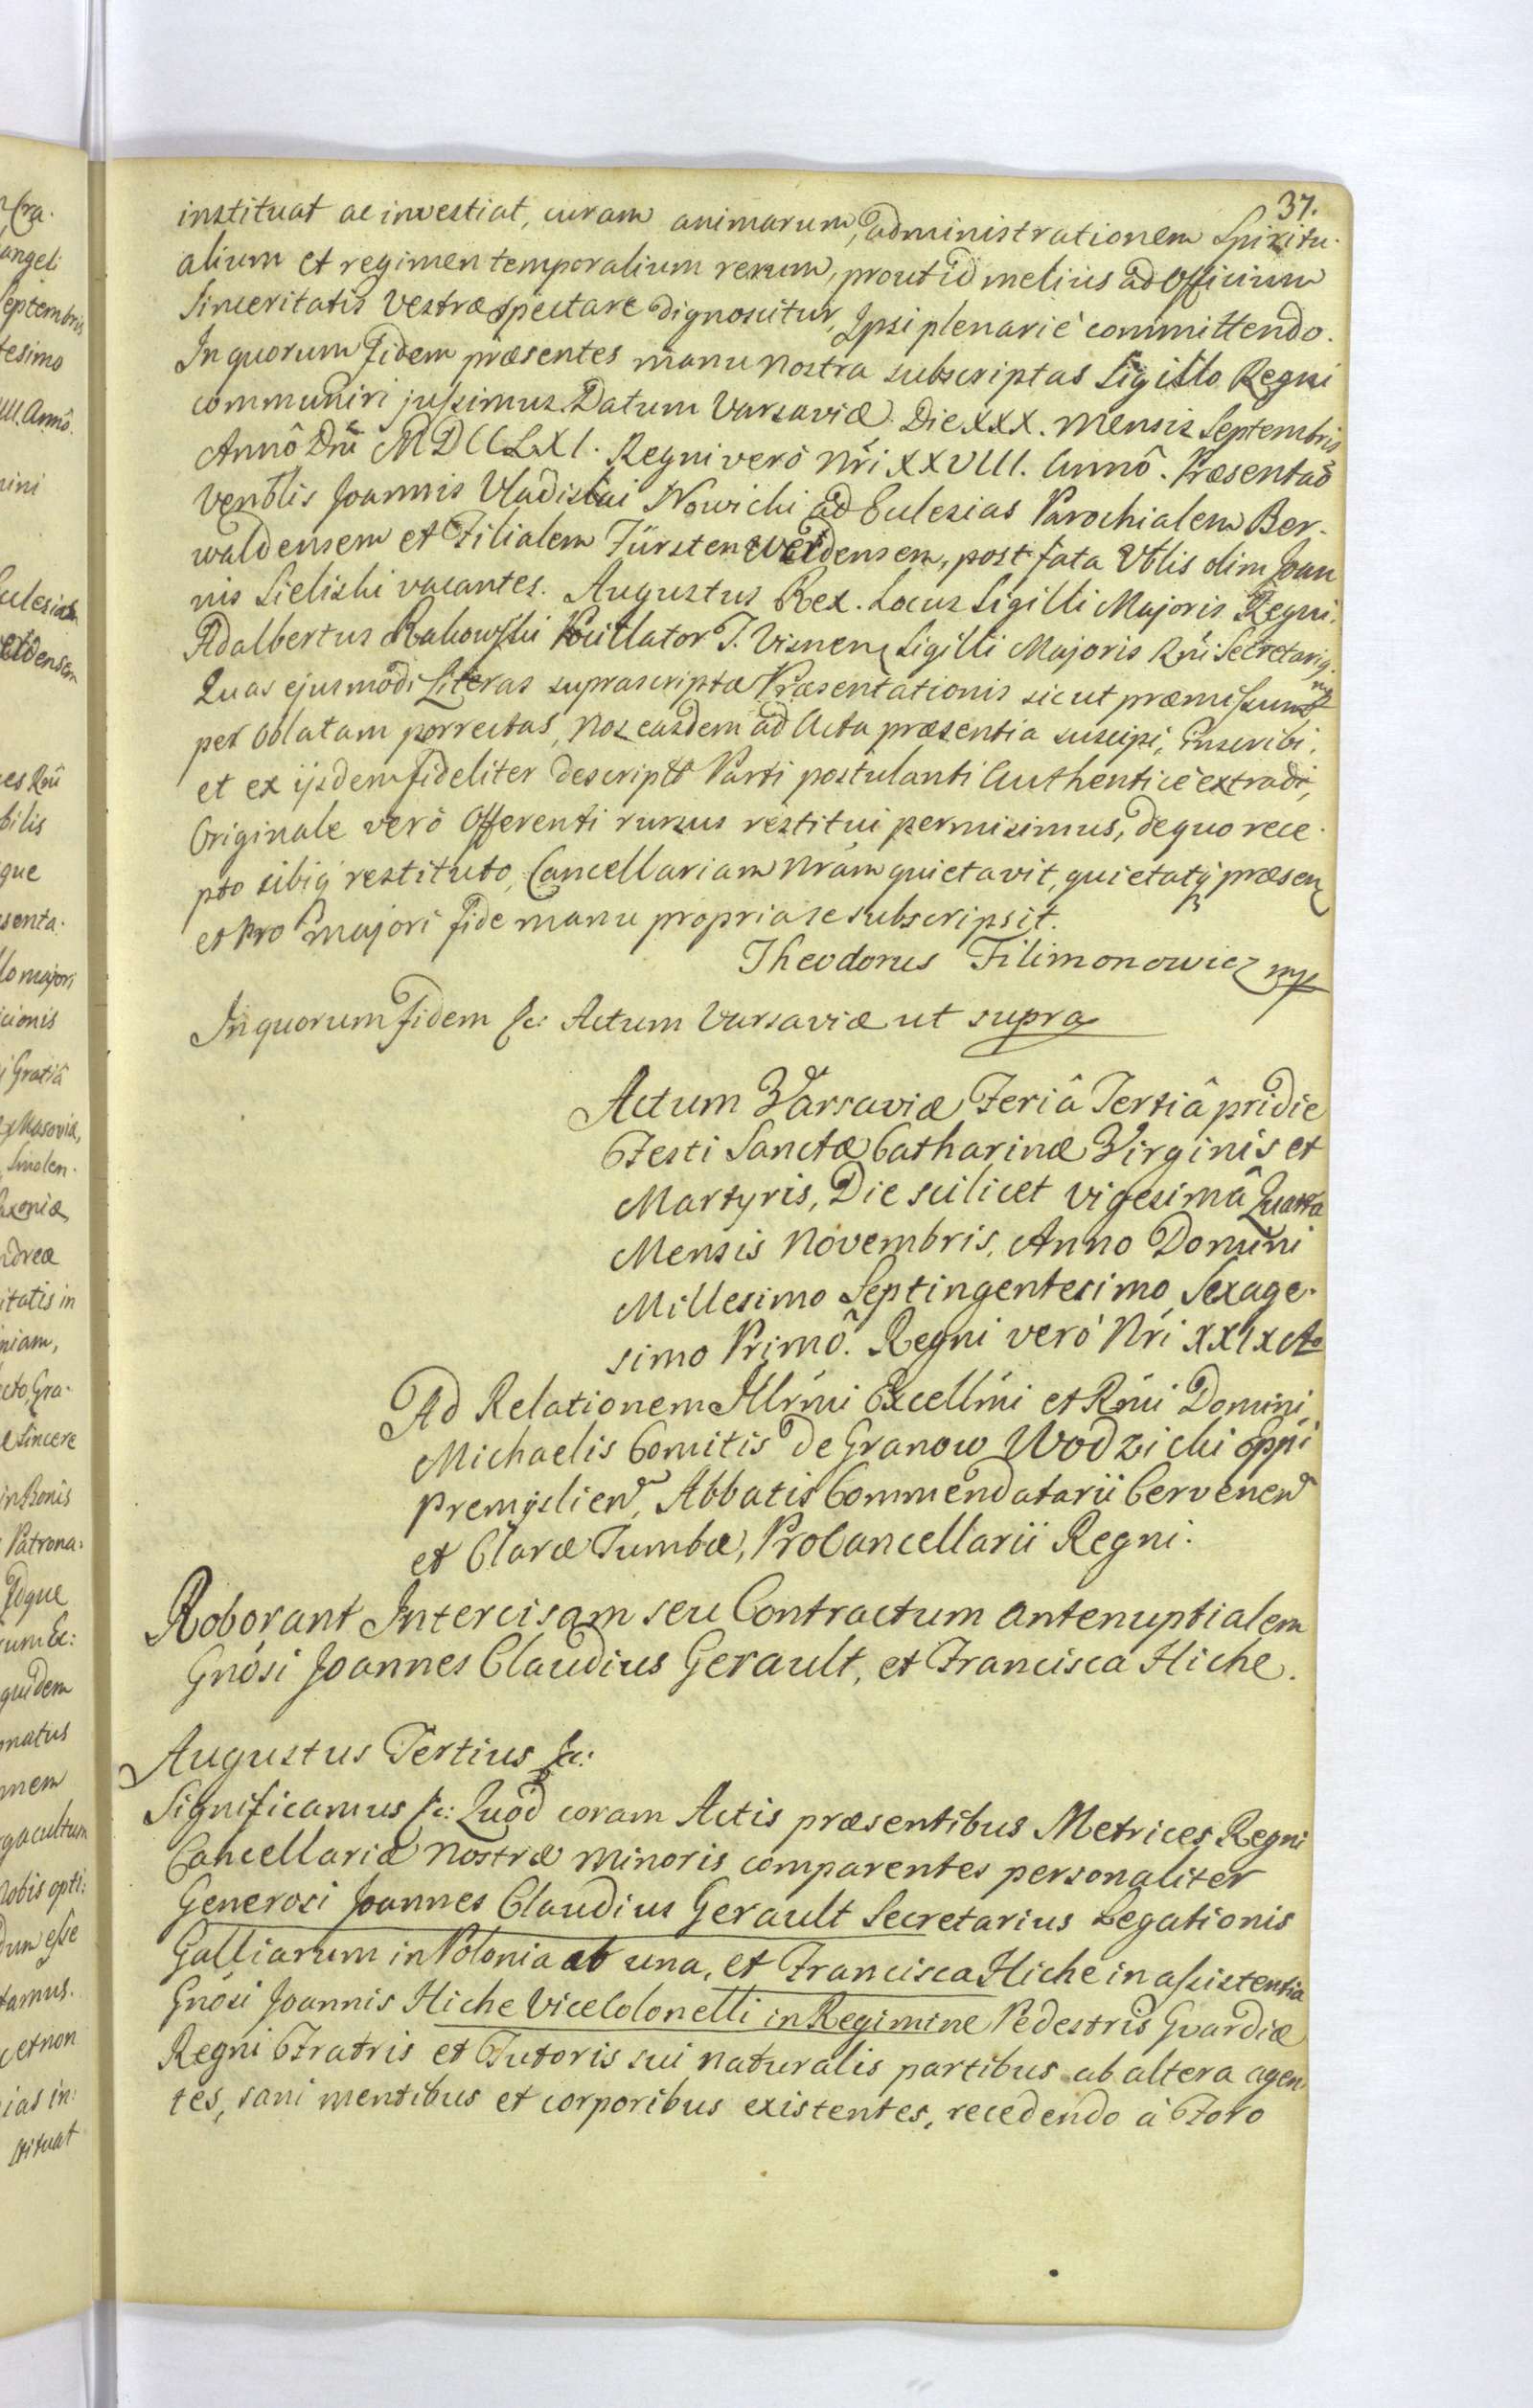 37.
instituat ac investiat, curam animarum, administrationem Spiritu-
alium et regimen temporalium rerum, prout id melius ad Officium
Sinceritatis Vestræ spectare dignoscitur, Ipsi plenariè committendo.
In quorum fidem præsentes manu nostra subscriptas Sigillo Regni
communiri jussimus. Datum Varsaviæ. Die XXX. Mensis Septembris
Annô Dñi MDCCLXI. Regni verò Nri XXVIII. Annô. Præsentaõ
Venblis Joannis Vladislai Nowicki ad Eclesias Parochialem Ber-
waldensem et Filialem Fürstenwerdensem, post fata Vblis olim Joan
nis Sielishi vacantes. Augustus Rex. Locus Sigilli Majoris Regni.
Adalbertus Rakowski T. Sigilli Majoris Rñi Secretariq
Quas ejusmodi Literas suprascriptæ Præsentationis sicut præmissum
per Oblatam porrectas, Nos easdem ad Acta præsentia suscipi, inscribi,
et ex ijsdem fideliter descripto Parti postulanti Authenticè extradi,
Originale verò Offerenti rursus restitui permisimus, de quo rece-
pto sibiq restituto, Cancellariam Nram quietavit, quietatq præsen
et pro majori fide manu propria se subscripsit.
Theodorus Filimonowicz mp
In quorum fidem &c: Actum Varsaviæ ut supra
Actum Varsaviæ Feriâ Tertiâ pridie
Festi Sanctæ Catharinæ Virginis et
Martyris, Die scilicet vigesimâ Quarta
Mensis Novembris, Anno Domini
Millesimo Septingentesimo Sexage-
simo Primô. Regni verò Nri XXIX Ao
Ad Relationem Illrmi Excellmi et Rmi Domini
Michaelis Comitis de Granow Wodzicki Eppi
Premyslien, Abbatis Commendatarii Cervenen
et Claræ Tumbæ, ProCancellarii Regni.
Roborant Intercisam seu Contractum antenuptialem
Gnosi Joannes Claudius Gerault, et Francisca Hiche.
Augustus Tertius &c:
Significamus &c: Quod coram Actis præsentibus Metrices Regni
Cancellariæ Nostræ Minoris comparentes personaliter
Generosi Joannes Claudius Gerault Secretarius Legationis
Galliarum in Polonia ab una, et Francisca Hiche in assistentia
Gnosi Joannis Hiche ViceColonelli in Regimine Pedestris Gvardiæ
Regni Fratris et Tutoris sui naturalis partibus ab altera agen-
tes, sani mentibus et corporibus existentes, recedendo à Foro